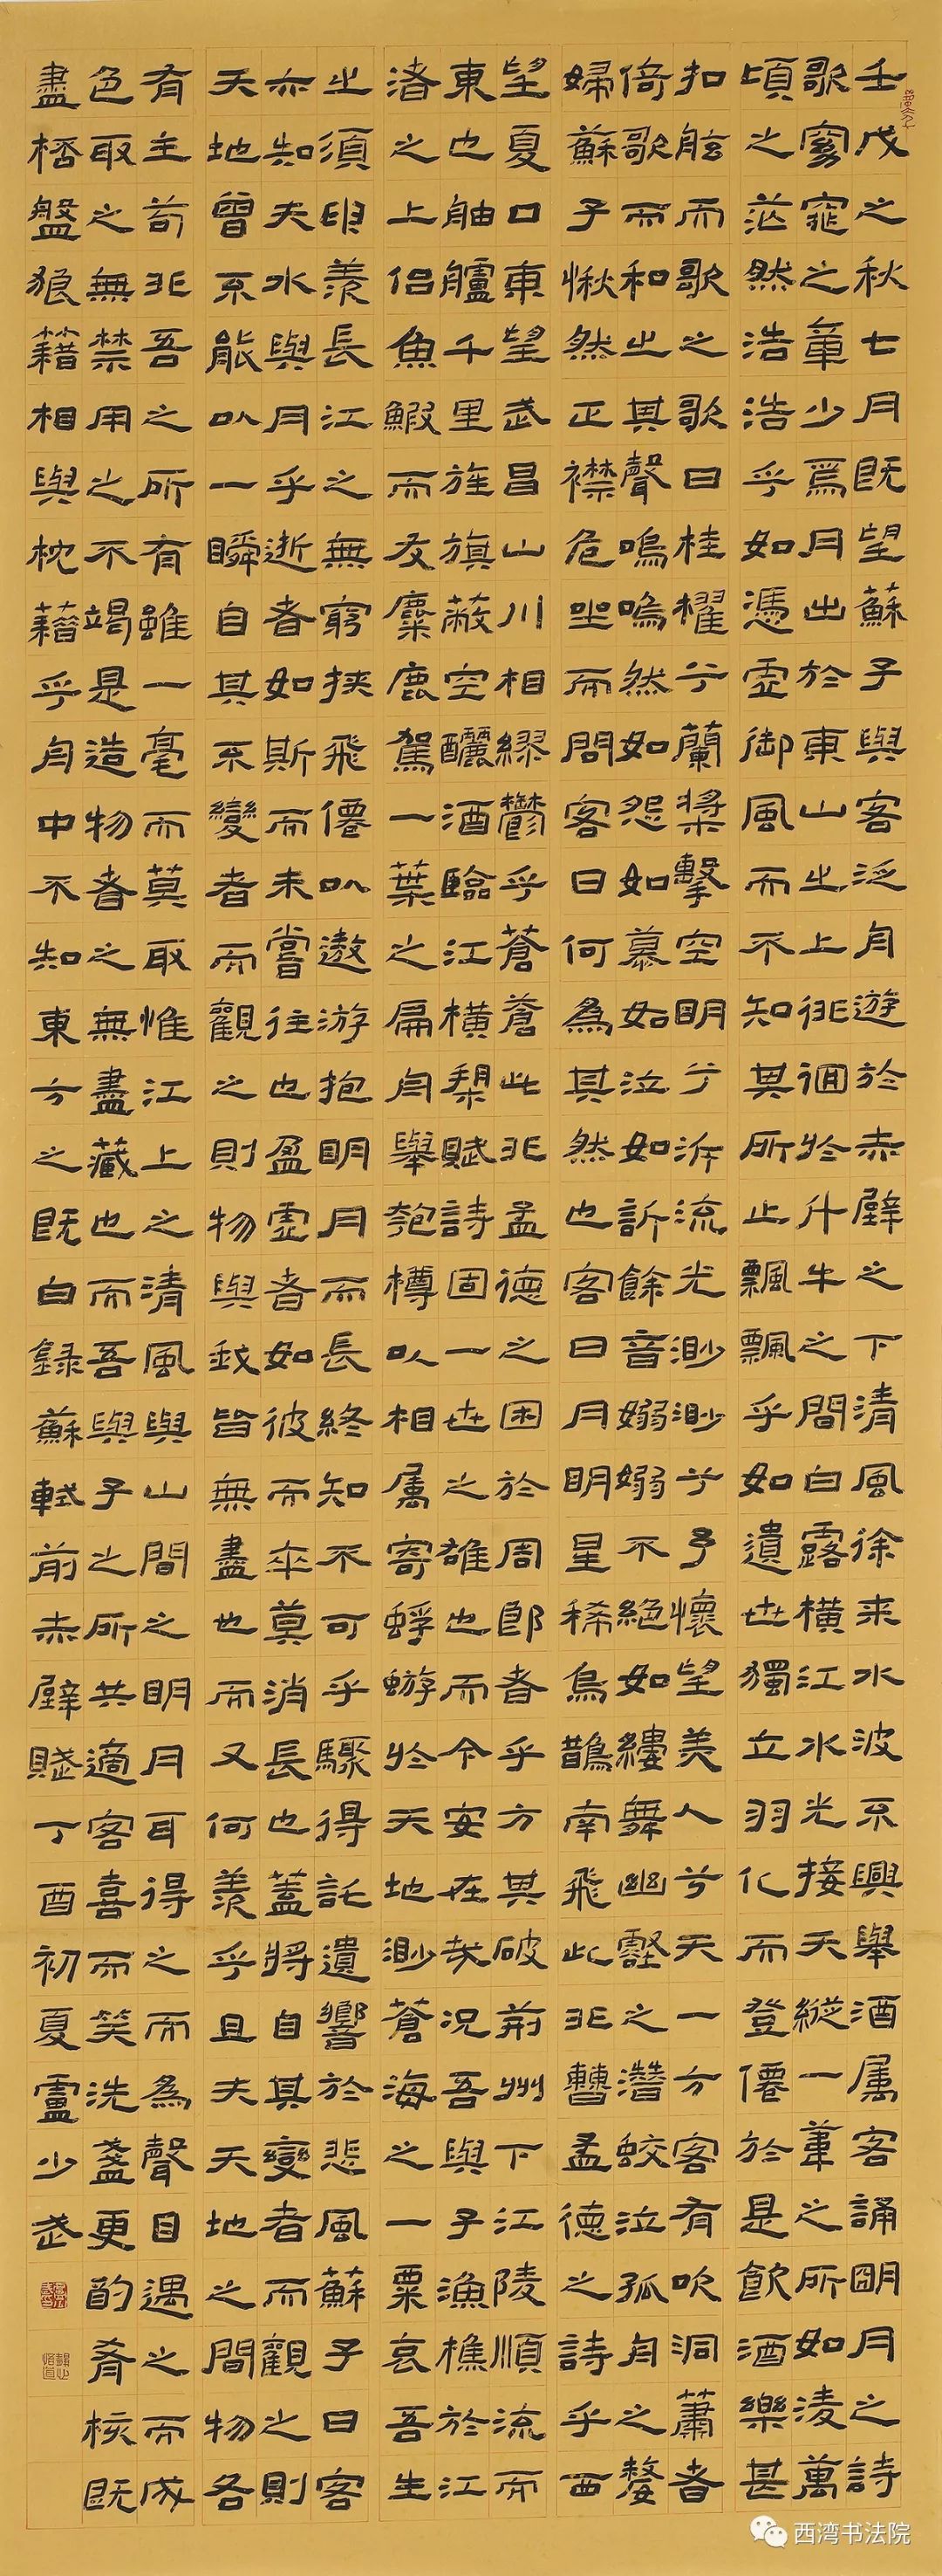 壬戌之秋七月既望蘇子與客泛舟遊於赤壁之下清風徐来水波不興舉酒属客誦明月之詩
歌窈窕之章少焉月出於東山之上徘徊於斗牛之間白露橫江水光接天縱一葦之所如淩萬
頃之茫然浩浩乎如馮虛御風而不知其所止飄飄乎如遺世獨立羽化而登僊於是飲酒樂甚
扣舷而歌之歌曰桂櫂兮蘭槳擊空明兮泝流光渺渺兮予懷望美人兮天一方客有吹洞蕭者
倚歌而和之其聲嗚嗚然如怨如慕如泣如訴餘音嫋嫋不絕如縷舞幽壑之潛蛟泣孤舟之嫠
婦蘇子愀然正襟危坐而問客曰何為其然也客曰月明星稀烏鵲南飛此非曹孟德之詩乎西
望夏口東望武昌山川相繆鬱乎蒼蒼此非孟德之困於周郎者乎方其破荊州下江陵順流而
東也舳艫千里旌旗蔽空釃酒臨江橫槊賦詩固一世之雄也而今安在哉況吾與子漁樵於江
渚之上侣魚鰕而友麋鹿駕一葉之扁舟舉匏樽以相属寄蜉蝣於天地渺蒼海之一粟哀吾生
之須臾羨長江之無窮挾飛僊以遨游抱明月而長終知不可乎驟得託遺響於悲風蘇子曰客
亦知夫水與月乎逝者如斯而未嘗往也盈虛者如彼而卒莫消長也蓋將自其變者而觀之則
天地曾不能以一瞬自其不變者而觀之則物與我皆無盡也而又何羨乎且夫天地之間物各
有主苟非吾之所有雖一毫而莫取惟江上之清風與山間之明月耳得之而為聲目遇之而成
色取之無禁用之不竭是造物者之無盡藏也而吾與子之所共適客喜而笑洗盞更酌肴核既
盡桮盤狼籍相與枕藉乎舟中不知東方之既白錄蘇軾前赤壁賦丁酉初夏盧少武
西湾书法院